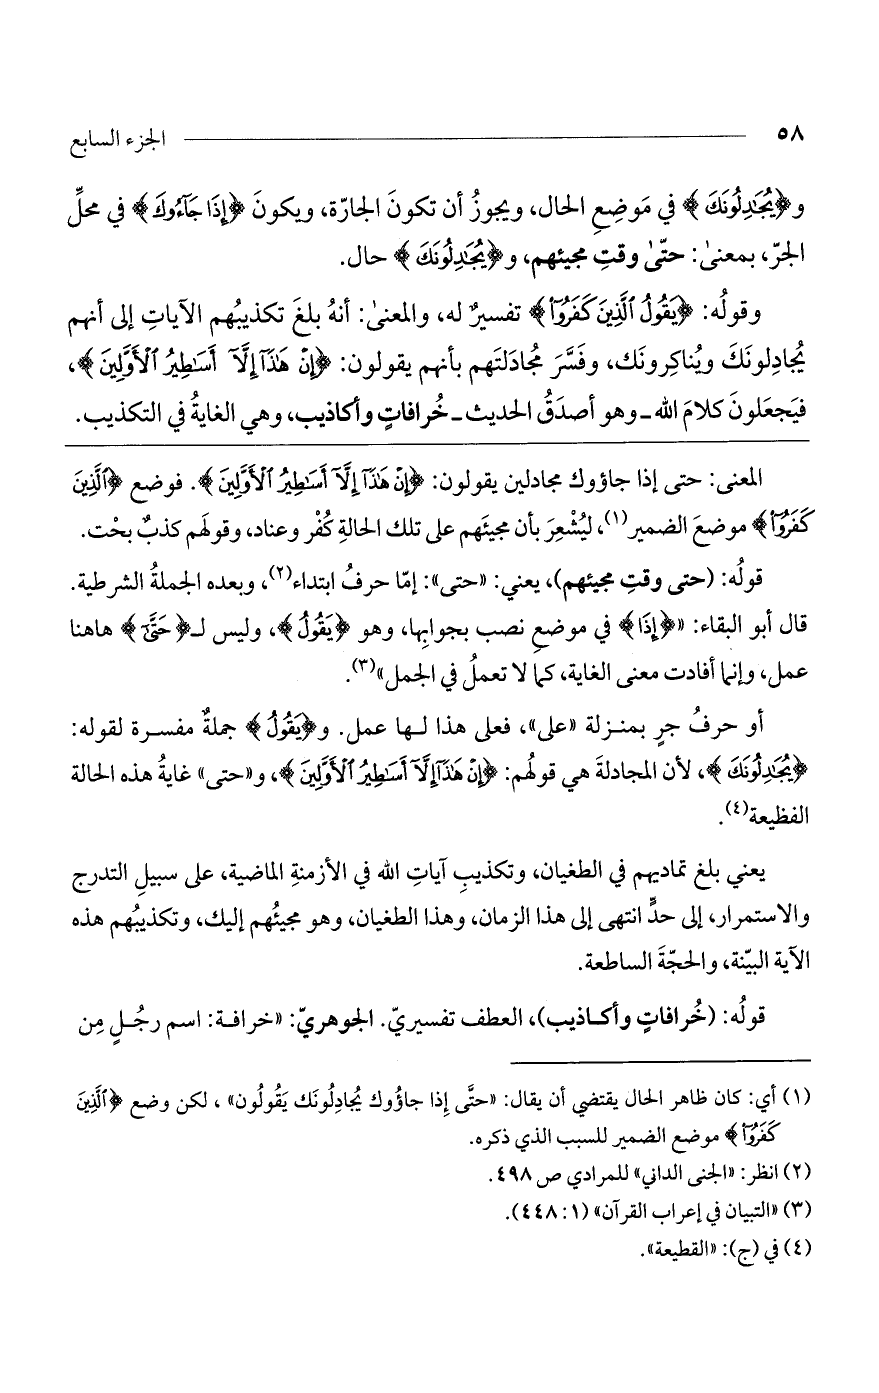 ٥٨ ــــــــــــــــــــ الجزء السابع
و﴿يُجَـٰدِلُونَكَ﴾ في مَوضِعِ الحال، ويجوزُ أن تكونَ الجارّة، ويكونَ ﴿إِذَا جَآءُوكَ﴾ في محلِّ
الجرّ، بمعنىٰ: حتّىٰ وقتِ مجيئهم، و﴿يُجَـٰدِلُونَكَ﴾ حال.
وقولُه: ﴿يَقُولُ ٱلَّذِينَ كَفَرُوٓا۟﴾ تفسيرٌ له، والمعنىٰ: أنهُ بلغَ تكذيبُهم الآياتِ إلى أنهم
يُجادِلونَكَ ويُناكِرونَك، وفَسَّرَ مُجادَلَتَهم بأنهم يقولون: ﴿إِنْ هَـٰذَآ إِلَّآ أَسَـٰطِيرُ ٱلْأَوَّلِينَ﴾،
فيَجعَلونَ كلامَ الله ـ وهو أصدَقُ الحديث ـ خُرافاتٍ وأكاذيب، وهي الغايةُ في التكذيب.
المعنى: حتى إذا جاؤوك مجادلين يقولون: ﴿إِنْ هَـٰذَآ إِلَّآ أَسَـٰطِيرُ ٱلْأَوَّلِينَ﴾. فوضع ﴿ٱلَّذِينَ
كَفَرُوٓا۟﴾ موضعَ الضمير(١)، ليُشْعِرَ بأن مجيئَهم على تلك الحالةِ كُفْر وعناد، وقولَهم كذبٌ بحْت.
قولُه: (حتى وقتِ مجيئهم)، يعني: «حتى»: إمّا حرفُ ابتداء(٢)، وبعده الجملةُ الشرطية.
قال أبو البقاء: «﴿إِذَا﴾ في موضعِ نصب بجوابِها، وهو ﴿يَقُولُ﴾، وليس لـ﴿حَتَّىٰٓ﴾ هاهنا
عمل، وإنما أفادت معنى الغاية، كما لا تعملُ في الجمل»(٣).
أو حرفُ جرٍ بمنـزلة «على»، فعلى هذا لـها عمل. و﴿يَقُولُ﴾ جملةٌ مفسـرة لقوله:
﴿يُجَـٰدِلُونَكَ﴾، لأن المجادلةَ هي قولُهم: ﴿إِنْ هَـٰذَآ إِلَّآ أَسَـٰطِيرُ ٱلْأَوَّلِينَ﴾، و«حتى» غايةُ هذه الحالة
الفظيعة(٤).
يعني بلغ تماديهم في الطغيان، وتكذيبِ آياتِ الله في الأزمنةِ الماضية، على سبيلِ التدرج
والاستمرار، إلى حدٍّ انتهى إلى هذا الزمان، وهذا الطغيان، وهو مجيئُهم إليك، وتكذيبُهم هذه
الآية البيّنة، والحجّةَ الساطعة.
قولُه: (خُرافاتٍ وأكـاذيب)، العطف تفسيريّ. الجوهريّ: «خرافـة: اسم رجُـلٍ مِن
(١) أي: كان ظاهر الحال يقتضي أن يقال: «حتَّى إِذا جاؤُوك يُجادِلُونَك يَقُولُون» ، لكن وضع ﴿ٱلَّذِينَ
كَفَرُوٓا۟﴾ موضع الضمير للسبب الذي ذكره.
(٢) انظر: «الجنى الداني» للمرادي ص ٤٩٨.
(٣) «التبيان في إعراب القرآن» (١: ٤٤٨).
(٤) في (ج): «القطيعة».